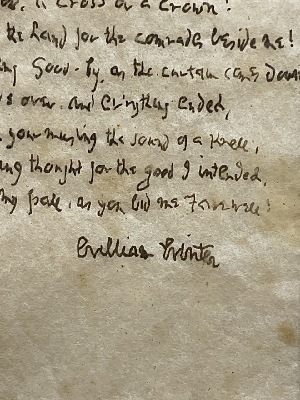 a Cross or a Crown!
the hand for the comrade beside me!
Good-by, as the curtain comes down
over and ev'rything ended,
your musing the sound of a knell,
thought for the good I intended,
as you bid me Farewell!
William Winter